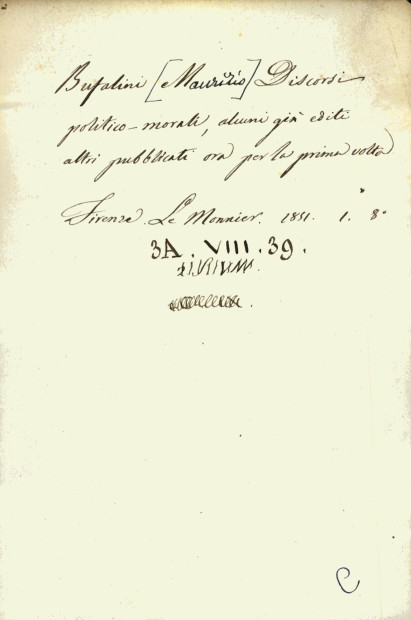 Bufalini [Maurizio] Discorsi
politico-morali, alcuni già editi
altri pubblicati ora per la prima volta
Firenze Le Monnier. 1851. 1. 8°
3A. VIII. 39.
C